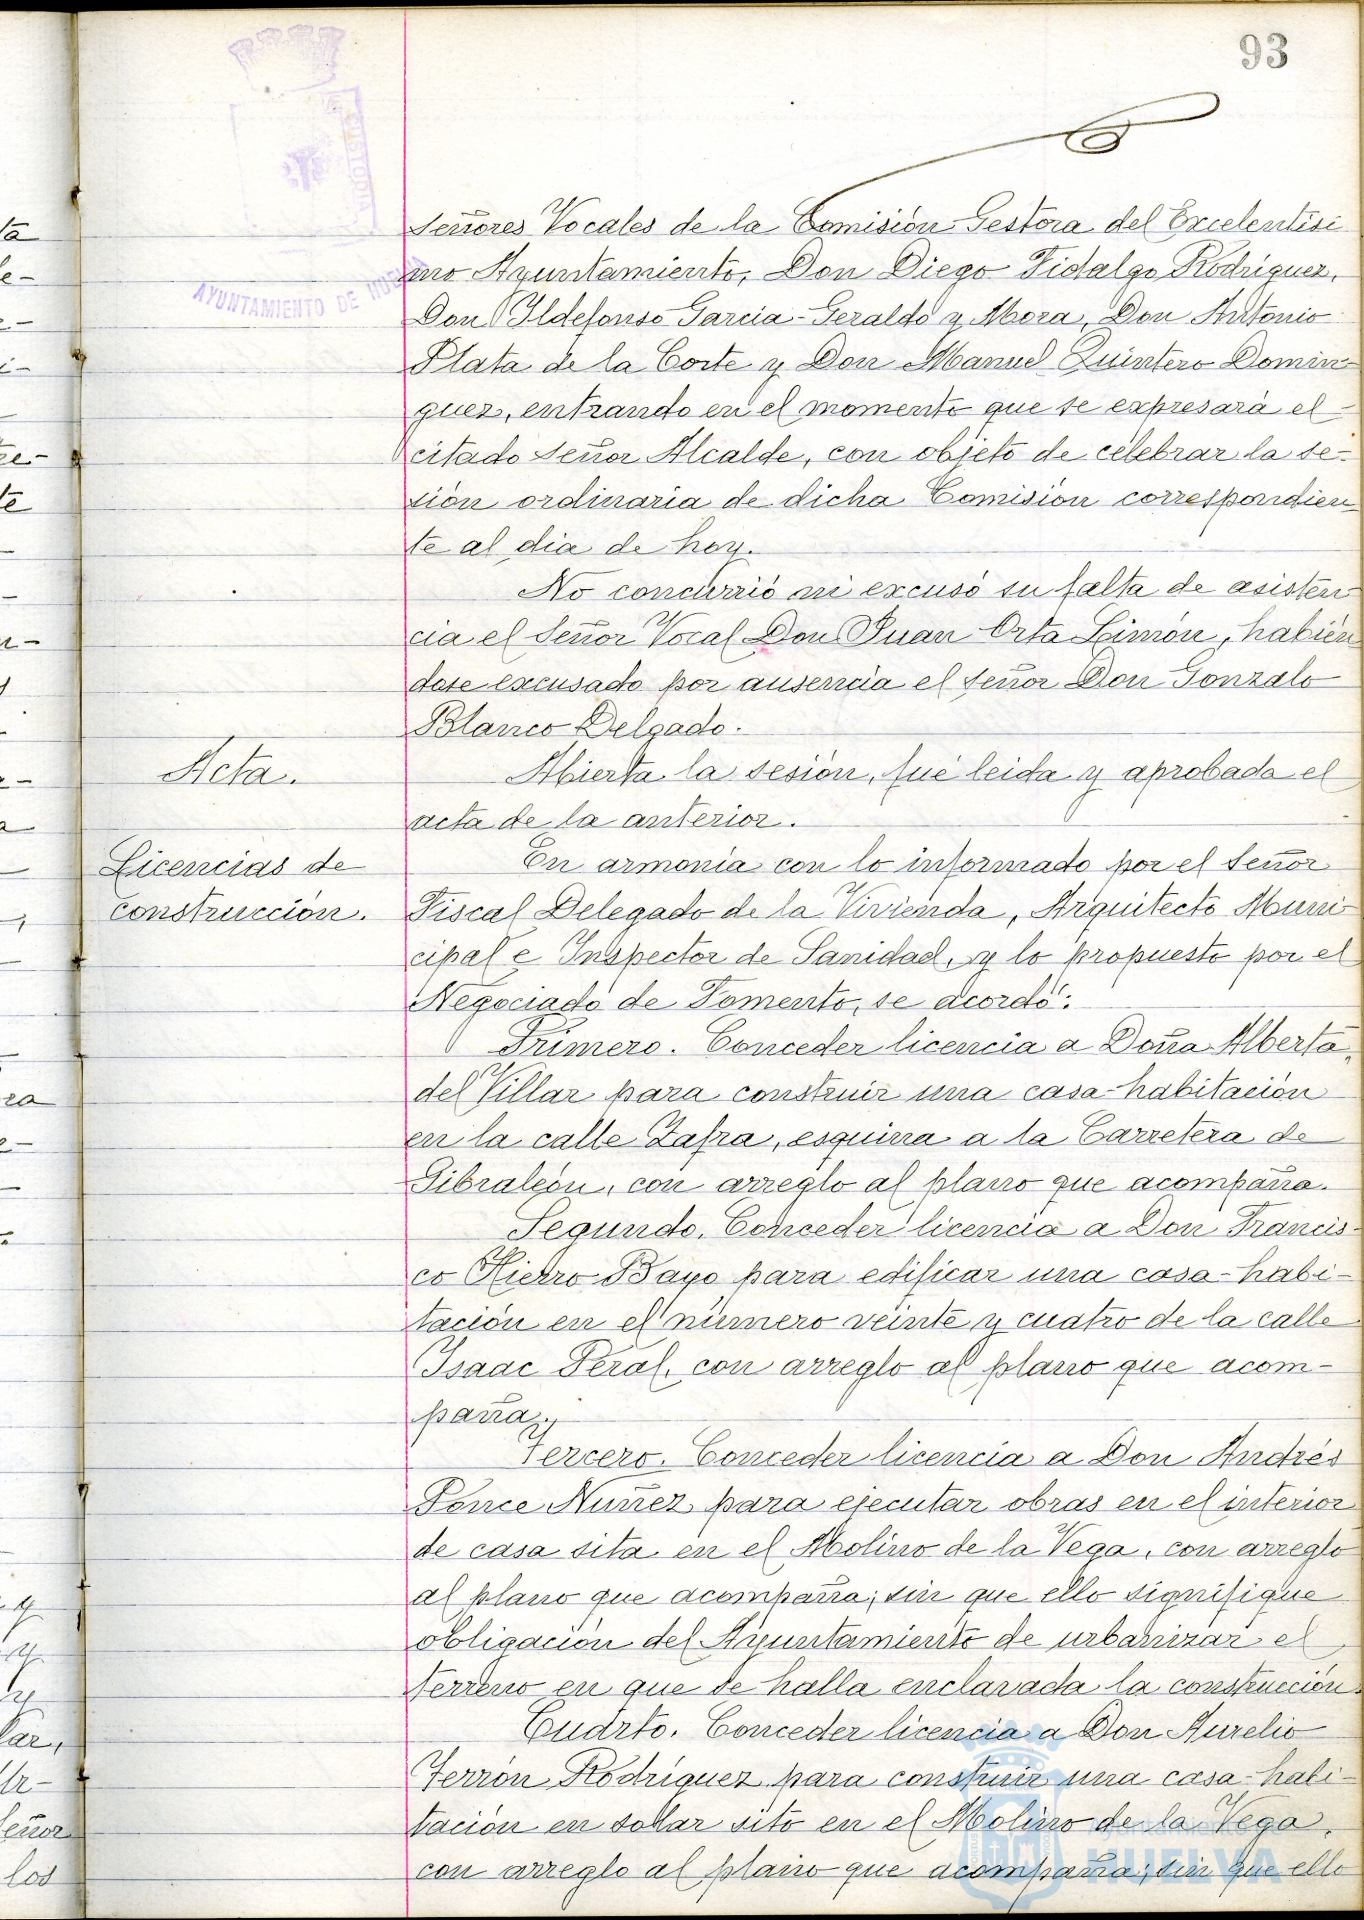 93
CUSTODIA
AYUNTAMIENTO DE HUELVA
señores Vocales de la Comisión Gestora del Excelentísi
mo Ayuntamiento, Don Diego Fidalgo Rodríguez,
Don Ildefonso García-Geraldo y Mora, Don Antonio
Plata de la Corte y Don Manuel Quintero Domín-
guez, entrando en el momento que se expresará el
citado señor Alcalde, con objeto de celebrar la se-
sión ordinaria de dicha Comisión correspondien-
te al dia de hoy.
No concurrió ni excusó su falta de asisten
cia el Señor Vocal Don Juan Orta Limón, habién
dose excusado por ausencia el señor Don Gonzalo
Blanco Delgado.
Acta.
Abierta la sesión, fué leida y aprobada el
acta de la anterior.
Licencias de
construcción.
En armonía con lo informado por el Señor
Fiscal Delegado de la Vivienda, Arquitecto Muni-
cipal e Inspector de Sanidad, y lo propuesto por el
Negociado de Fomento, se acordó:
Primero. Conceder licencia a Doña Alberta
del Villar para construir una casa-habitación
en la calle Zafra, esquina a la Carretera de
Gibraleón, con arreglo al plano que acompaña.
Segundo. Conceder licencia a Don Francis-
co Hierro Bayo para edificar una casa-habi-
tación en el número veinte y cuatro de la calle
Isaac Peral, con arreglo al plano que acom-
paña.
Tercero. Conceder licencia a Don Andrés
Ponce Nuñez para ejecutar obras en el interior
de casa sita en el Molino de la Vega, con arreglo
al plano que acompaña; sin que ello signifique
obligación del Ayuntamiento de urbanizar el
terreno en que se halla enclavada la construcción.
Cuarto. Conceder licencia a Don Aurelio
Ferrón Rodríguez para construir una casa-habi-
tación en solar sito en el Molino de la Vega,
con arreglo al plano que acompaña; sin que ello
Ayuntamiento de
HUELVA